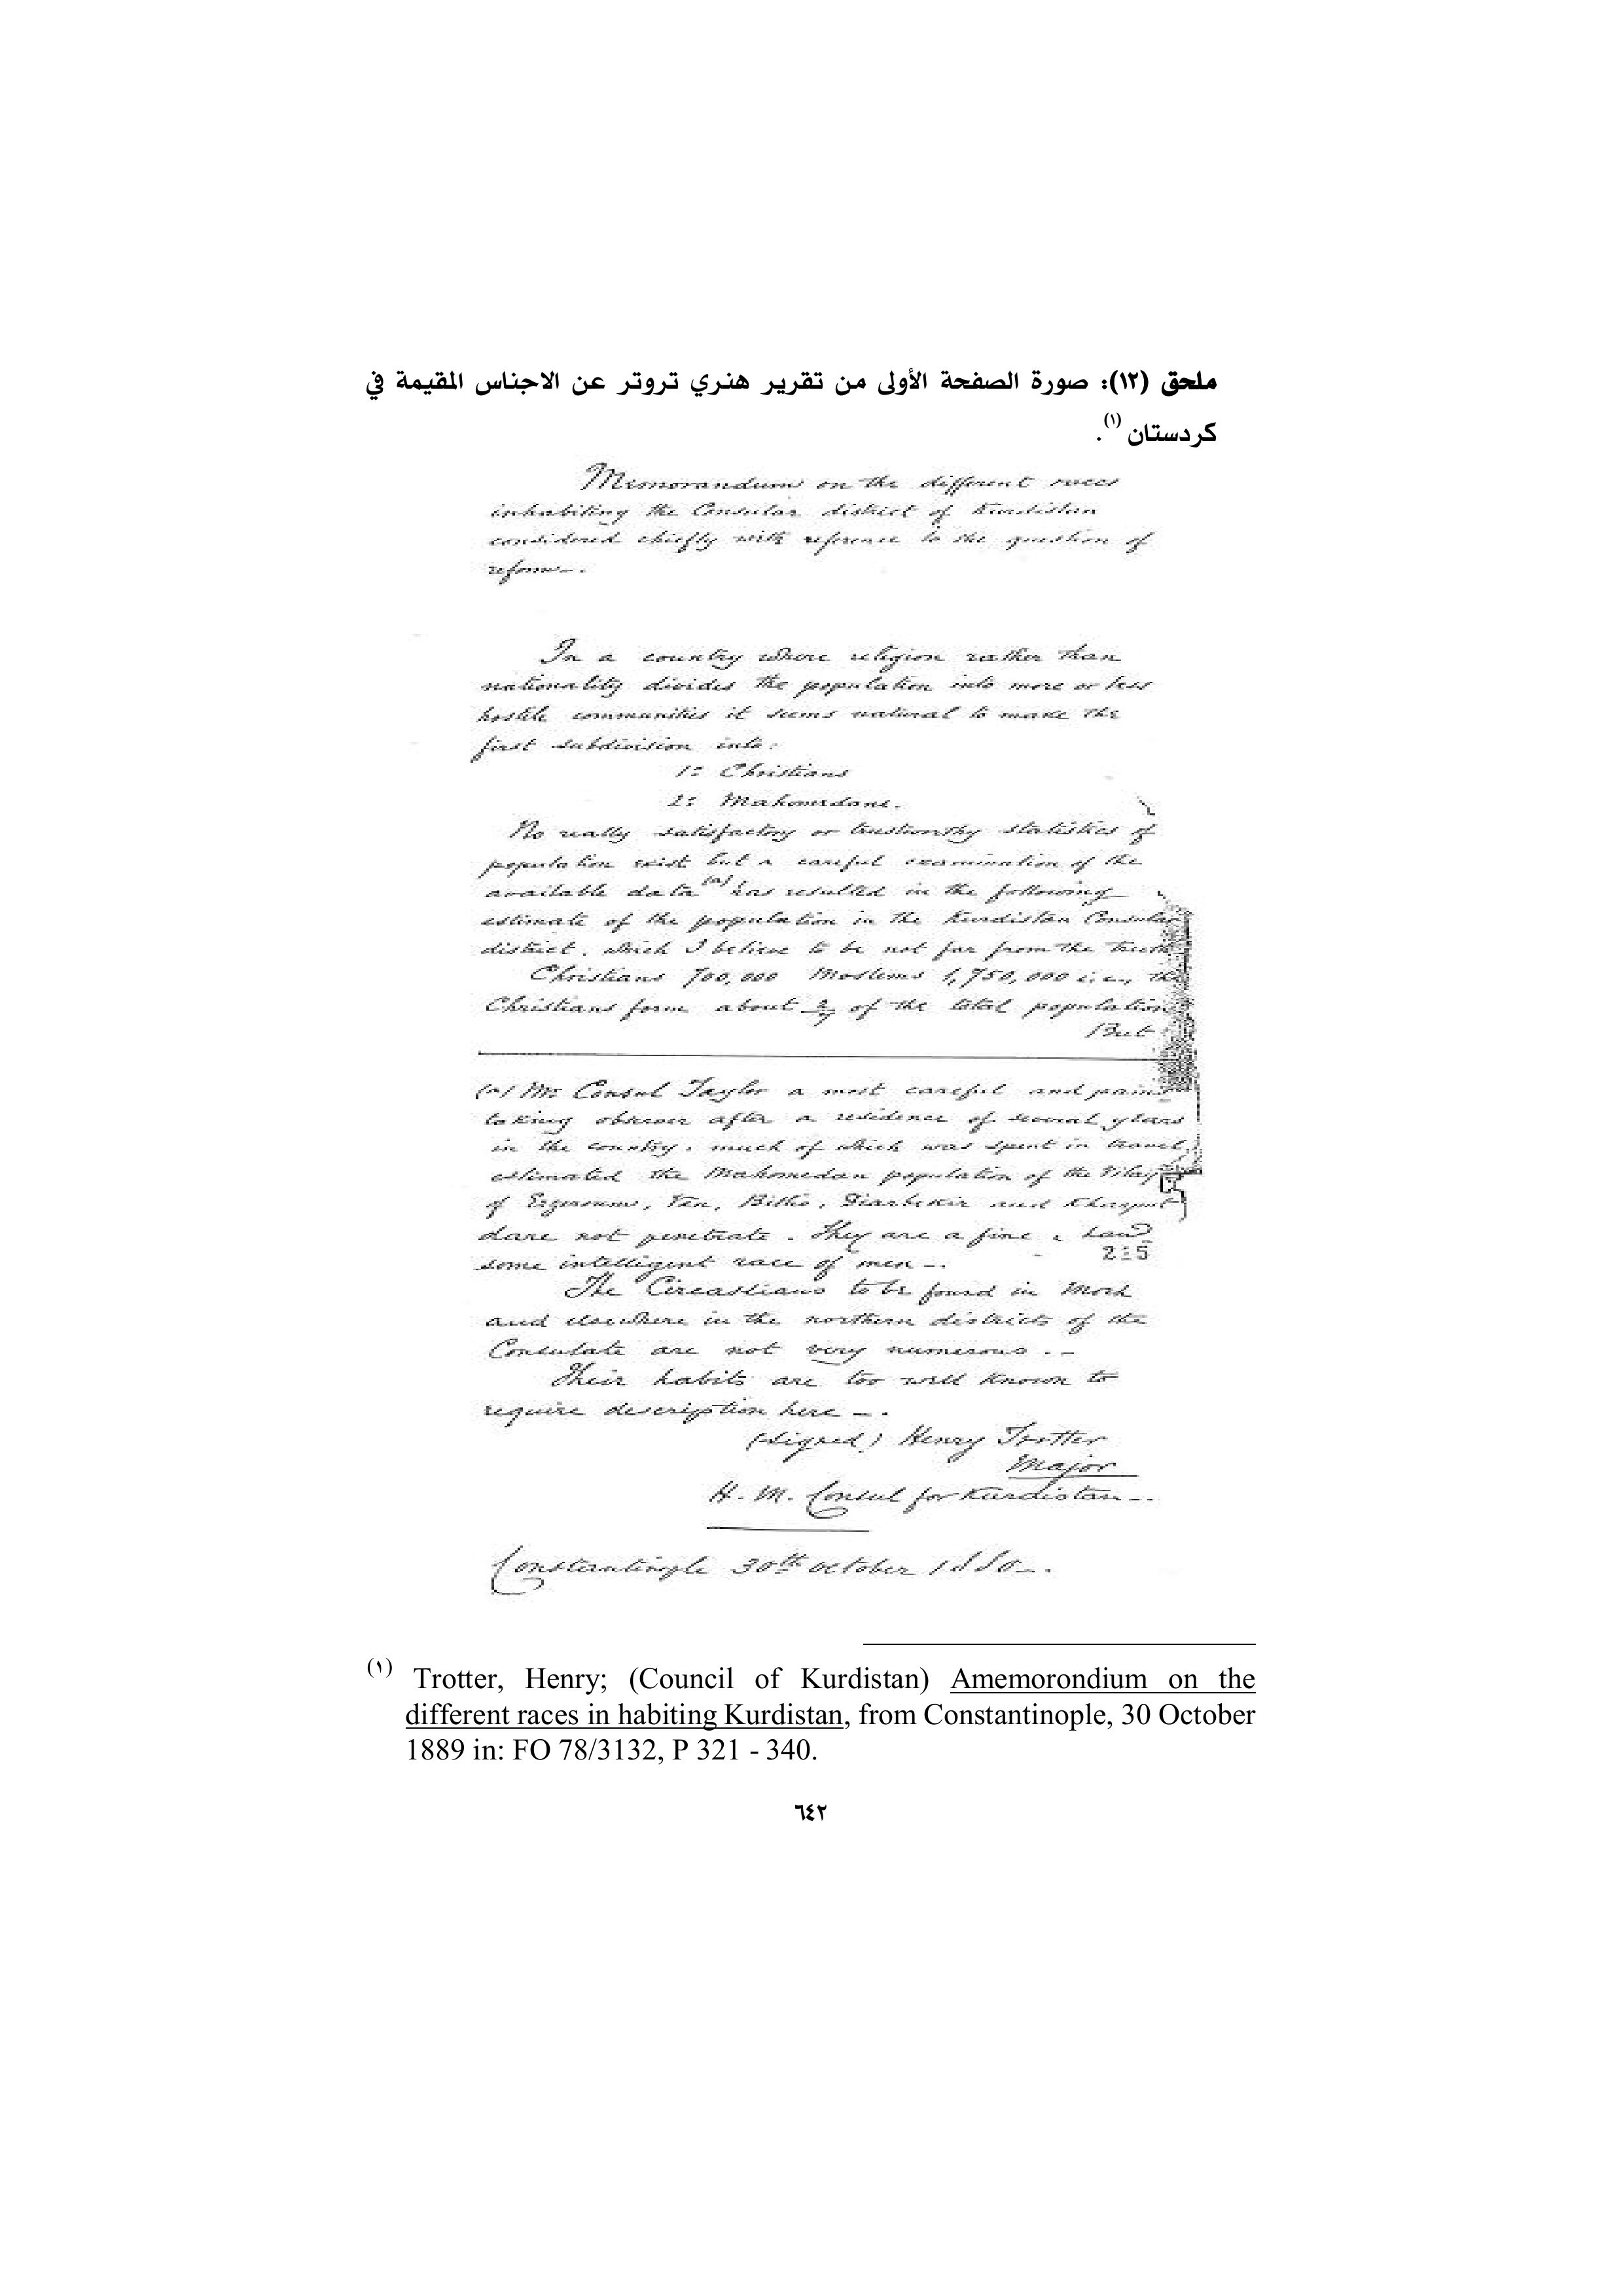 ملحق (١٢): صورة الصفحة الأولى من تقرير هنري تروتر عن الاجناس المقيمة في
كردستان (١).
Memorandum on the different races
inhabiting the Consular district of Kurdistan
considered chiefly with reference to the question of
reform_.
In a country where religion rather than
nationality divides the population into more or less
hostile communities it seems natural to make the
first subdivision into:
1: Christians
2: Mahomedans.
No really satisfactory or trustworthy statistics of
population exist but a careful examination of the
available data (a) has resulted in the following
estimate of the population in the Kurdistan Consular
district, which I believe to be not far from the truth
Christians 700,000 Moslems 1,750,000 i.e., the
Christians form about 2/7 of the total population
But
(a) Mr Consul Taylor a most careful and pains
taking observer after a residence of several years
in the country, much of which was spent in travel,
estimated the Mahomedan population of the
of Erzeroum, Van, Bitlis, Diarbekir and Kharput
dare not penetrate. They are a fine & hand
215
some intelligent race of men_.
The Circassians to be found in
and elsewhere in the northern districts of the
Consulate are not very numerous._
Their habits are too well known to
require description here_.
(signed) Henry Trotter
Major
H. M. Consul for Kurdistan_.
Constantinople 30th October 1880_.
(١) Trotter, Henry; (Council of Kurdistan) Amemorondium on the
different races in habiting Kurdistan, from Constantinople, 30 October
1889 in: FO 78/3132, P 321 - 340.
٦٤٢